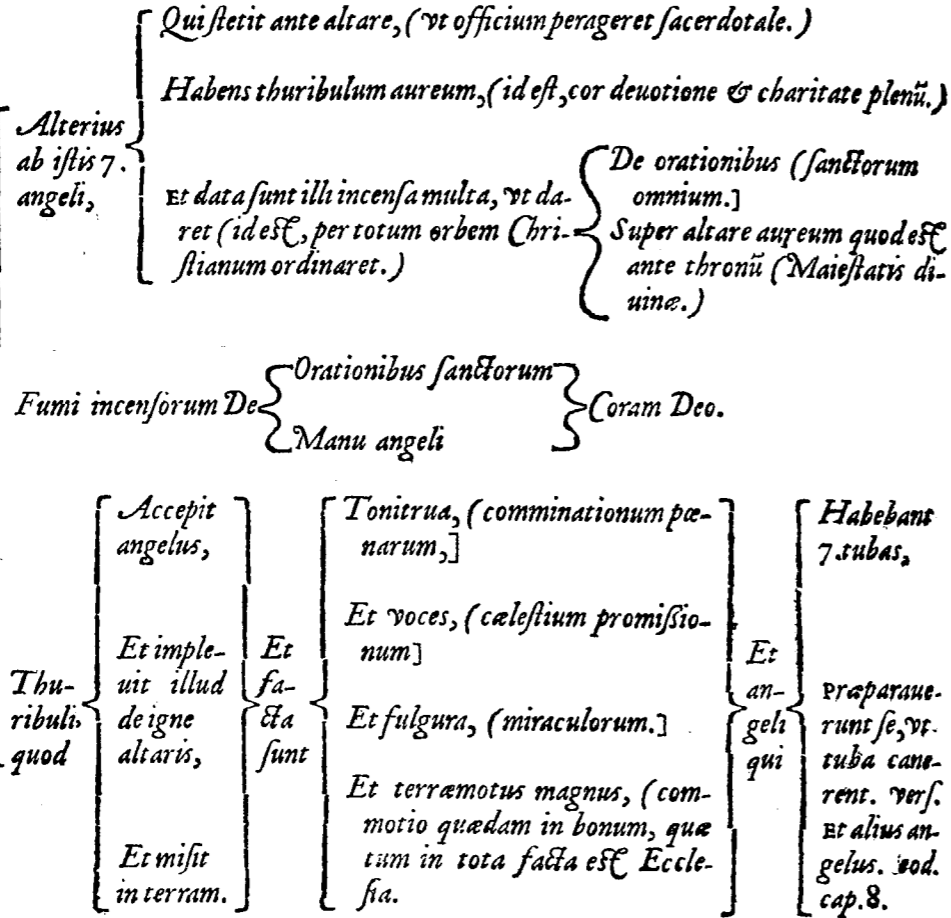 Alterius
ab istis 7.
angeli,
Qui stetit ante altare, (vt officium perageret sacerdotale.)
Habens thuribulum aureum, (id est, cor deuotione & charitate plenũ.)
Et data sunt illi incensa multa, vt da-
ret (id est, per totum orbem Chri-
stianum ordinaret.)
De orationibus (sanctorum
omnium.]
Super altare aureum quod est
ante thronũ (Maiestatis di-
uinæ.)
Fumi incensorum De
Orationibus sanctorum
Manu angeli
Coram Deo.
Thu-
ribuli,
quod
Accepit
angelus,
Et imple-
uit illud
de igne
altaris,
Et misit
in terram.
Et
fa-
cta
sunt
Tonitrua, (comminationum pœ-
narum,]
Et voces, (cælestium promissio-
num]
Et fulgura, (miraculorum.]
Et terræmotus magnus, (com-
motio quædam in bonum, quæ
tum in tota facta est Eccle-
sia.
Et
an-
geli
qui
Habebant
7.tubas,
Præparaue-
runt se, vt
tuba cane-
rent. vers.
Et alius an-
gelus. eod.
cap.8.